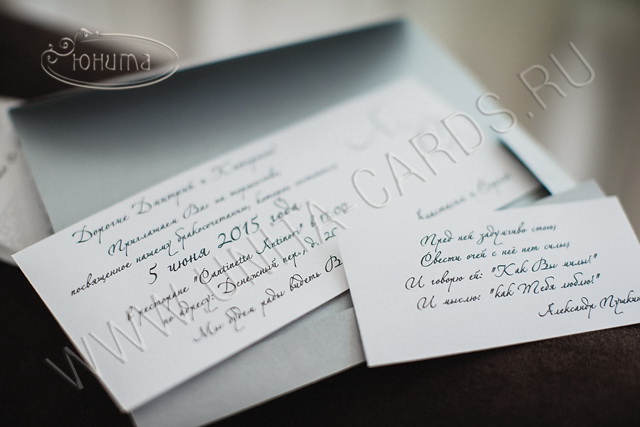 Юнита
Дорогие Дмитрий и
Приглашаем Вас на торжество,
посвященное нашему бракосочетанию, которое состоится
5 июня 2015 года в
В ресторане "Cantinetta Antinori"
по адресу: Денежный пер., д. 20
Мы будем рады видеть В
Пред ней задумчиво стою,
Свести очей с неё нет силы;
И говорю ей: "Как Вы милы!"
И мыслю: "как Тебя люблю!"
Александр Пушкин
WWW.UNITA-CARDS.RU